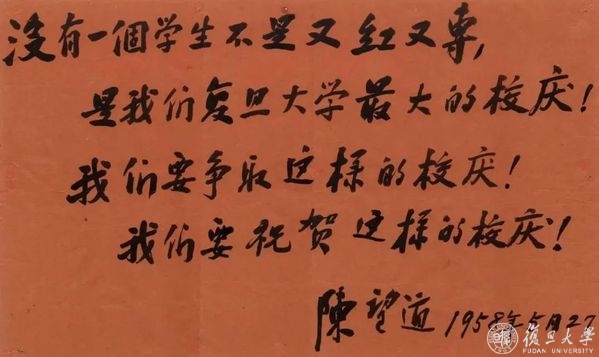 沒有一個学生不是又红又専,
是我们复旦大学最大的校庆!
我们要争取这样的校庆!
我们要祝贺这样的校庆!
陳望道 1958年5月27
復旦大學
FUDAN UNIVERSITY